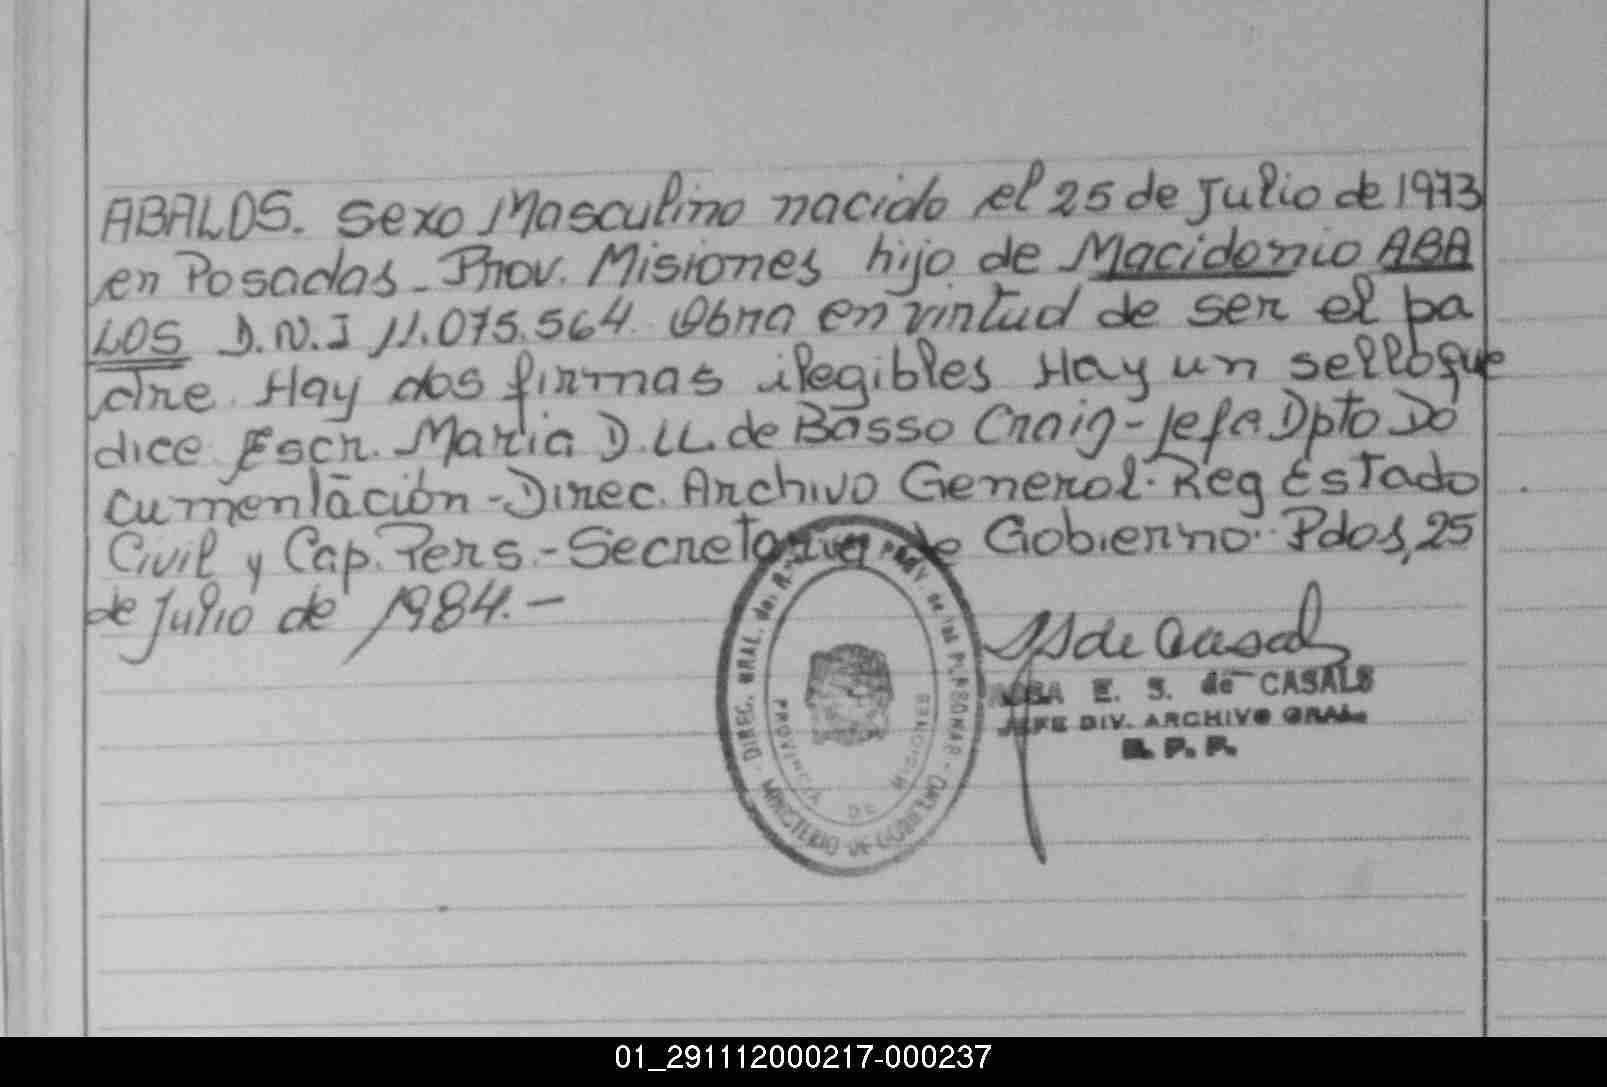 ABALOS. Sexo Masculino nacido el 25 de Julio de 1973
en Posadas - Prov. Misiones hijo de Macidonio ABA
LOS D.N.I 11.075.564. Obra en virtud de ser el pa
dre. Hay dos firmas ilegibles Hay un sello que
dice Escr. Maria D. LL. de Basso Craig - Jefa Dpto Do
cumentación - Direc. Archivo General. Reg Estado
Civil y Cap. Pers. - Secretaria de Gobierno. Pdos, 25
de Julio de 1984. -
S de Casals
E. S. de CASALS
JEFE DIV. ARCHIVO GRAL.
R. P. P.
DIREC. GRAL. del PROV. de las PERSONAS - MINISTERIO DE GOBIERNO
PROVINCIA DE MISIONES
01_291112000217-000237